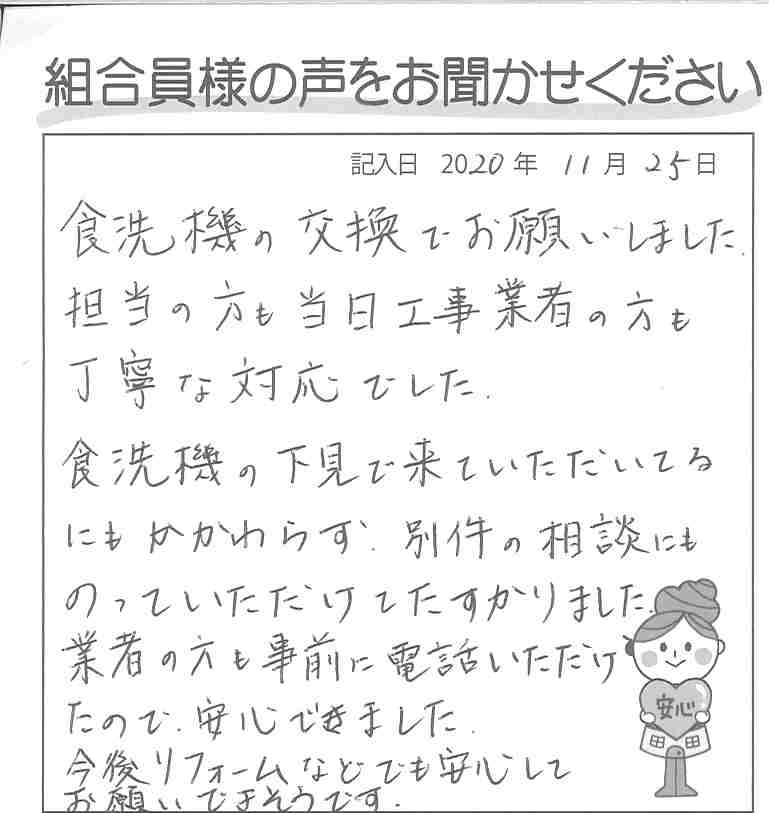 組合員様の声をお聞かせください
記入日 2020年 11月 25日
食洗機の交換でお願いしました.
担当の方も当日工事業者の方も
丁寧な対応でした.
食洗機の下見で来ていただいてる
にもかかわらず. 別件の相談にも
のっていただけてたすかりました.
業者の方も事前に電話いただけ
たので. 安心できました.
今後リフォームなどでも安心して
お願いできそうです.
安心